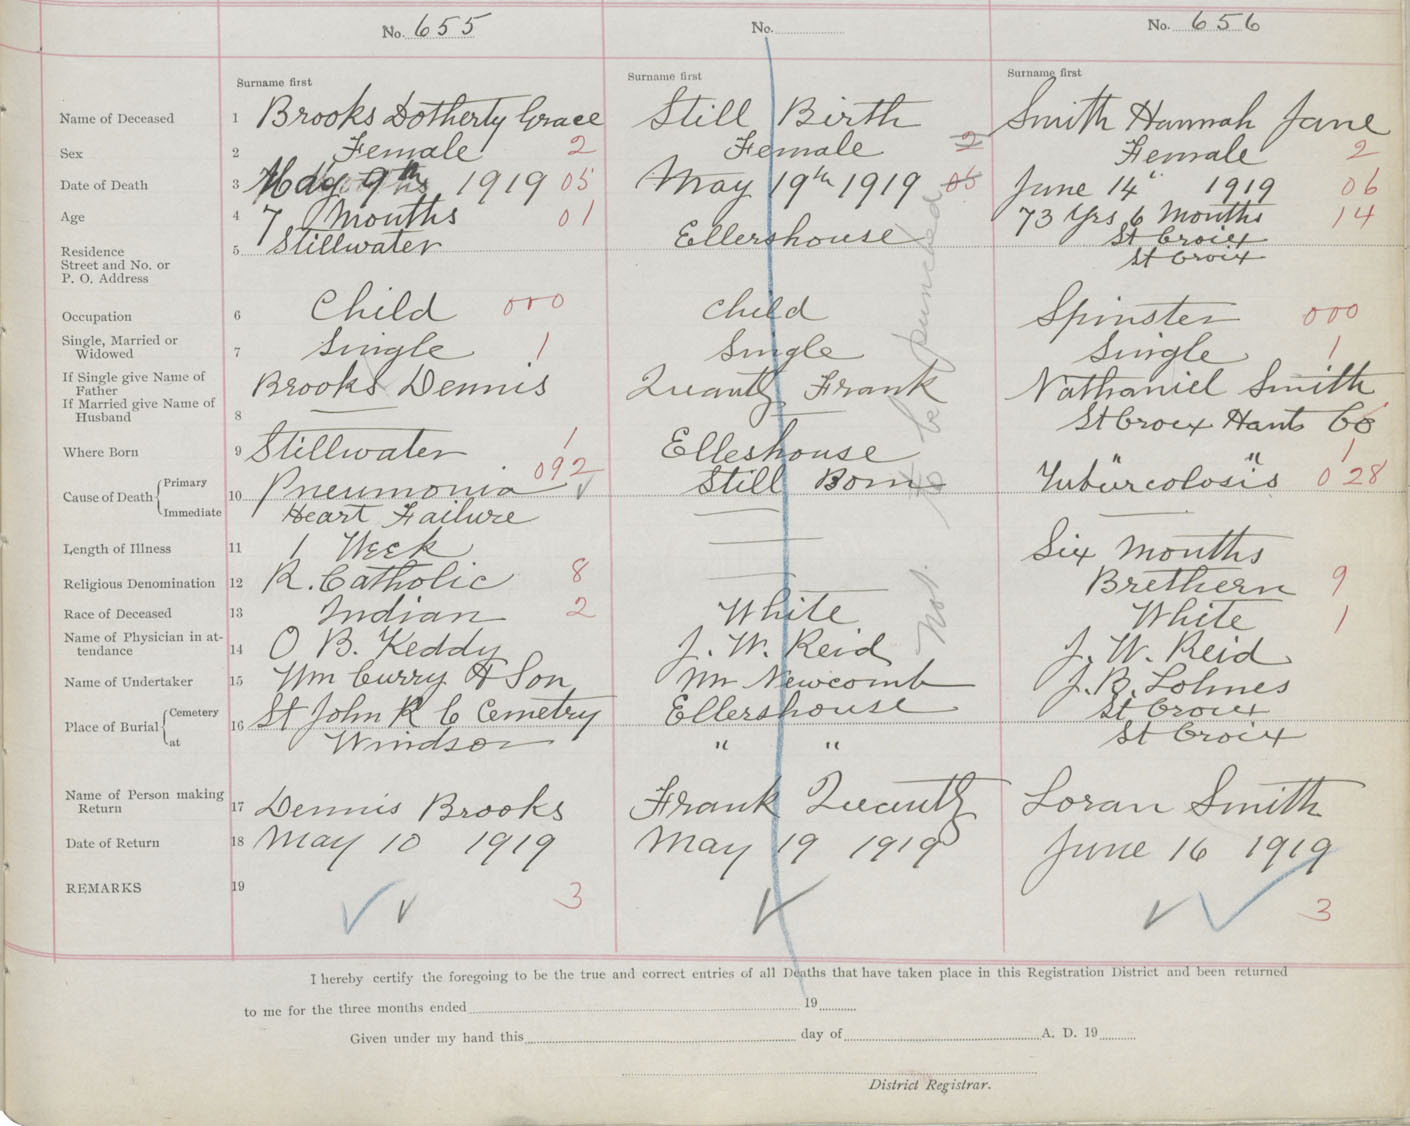 No. 655
No.
No. 656
Surname first
Surname first
Surname first
Name of Deceased 1 Brooks Dotherty Grace Still Birth Smith Hannah Jane
Sex 2 Female 2 Female 2 Female 2
Date of Death 3 May 9th 1919 05 May 19th 1919 05 June 14" 1919 06
Age 4 7 Months 01 73 Yrs 6 Months 14
Residence Street and No. or P. O. Address 5 Stillwater Ellershouse St Croix
St Croix
Occupation 6 Child 000 Child Spinster 000
Single, Married or Widowed 7 Single 1 Single Single 1
If Single give Name of Father Brooks Dennis Quantz Frank Nathaniel Smith
If Married give Name of Husband 8 St Croix Hants Co
Where Born 9 Stillwater 1 Elleshouse 1
Cause of Death Primary 10 Pneumonia 092 Still Born Tuburcolosis 028
Immediate Heart Failure
Length of Illness 11 1 Week Six Months
Religious Denomination 12 R. Catholic 8 Brethern 9
Race of Deceased 13 Indian 2 White White 1
Name of Physician in attendance 14 O B. Keddy J. W. Reid J. W. Reid
Name of Undertaker 15 Wm Curry & Son Wm Newcomb J. B. Lohnes
Place of Burial Cemetery 16 St John R C Cemetry Ellershouse St Croix
at Windsor " " St Croix
Name of Person making Return 17 Dennis Brooks Frank Quantz Loran Smith
Date of Return 18 May 10 1919 May 19 1919 June 16 1919
REMARKS 19 3 3
Not to be punched
I hereby certify the foregoing to be the true and correct entries of all Deaths that have taken place in this Registration District and been returned
to me for the three months ended 19
Given under my hand this day of A. D. 19
District Registrar.